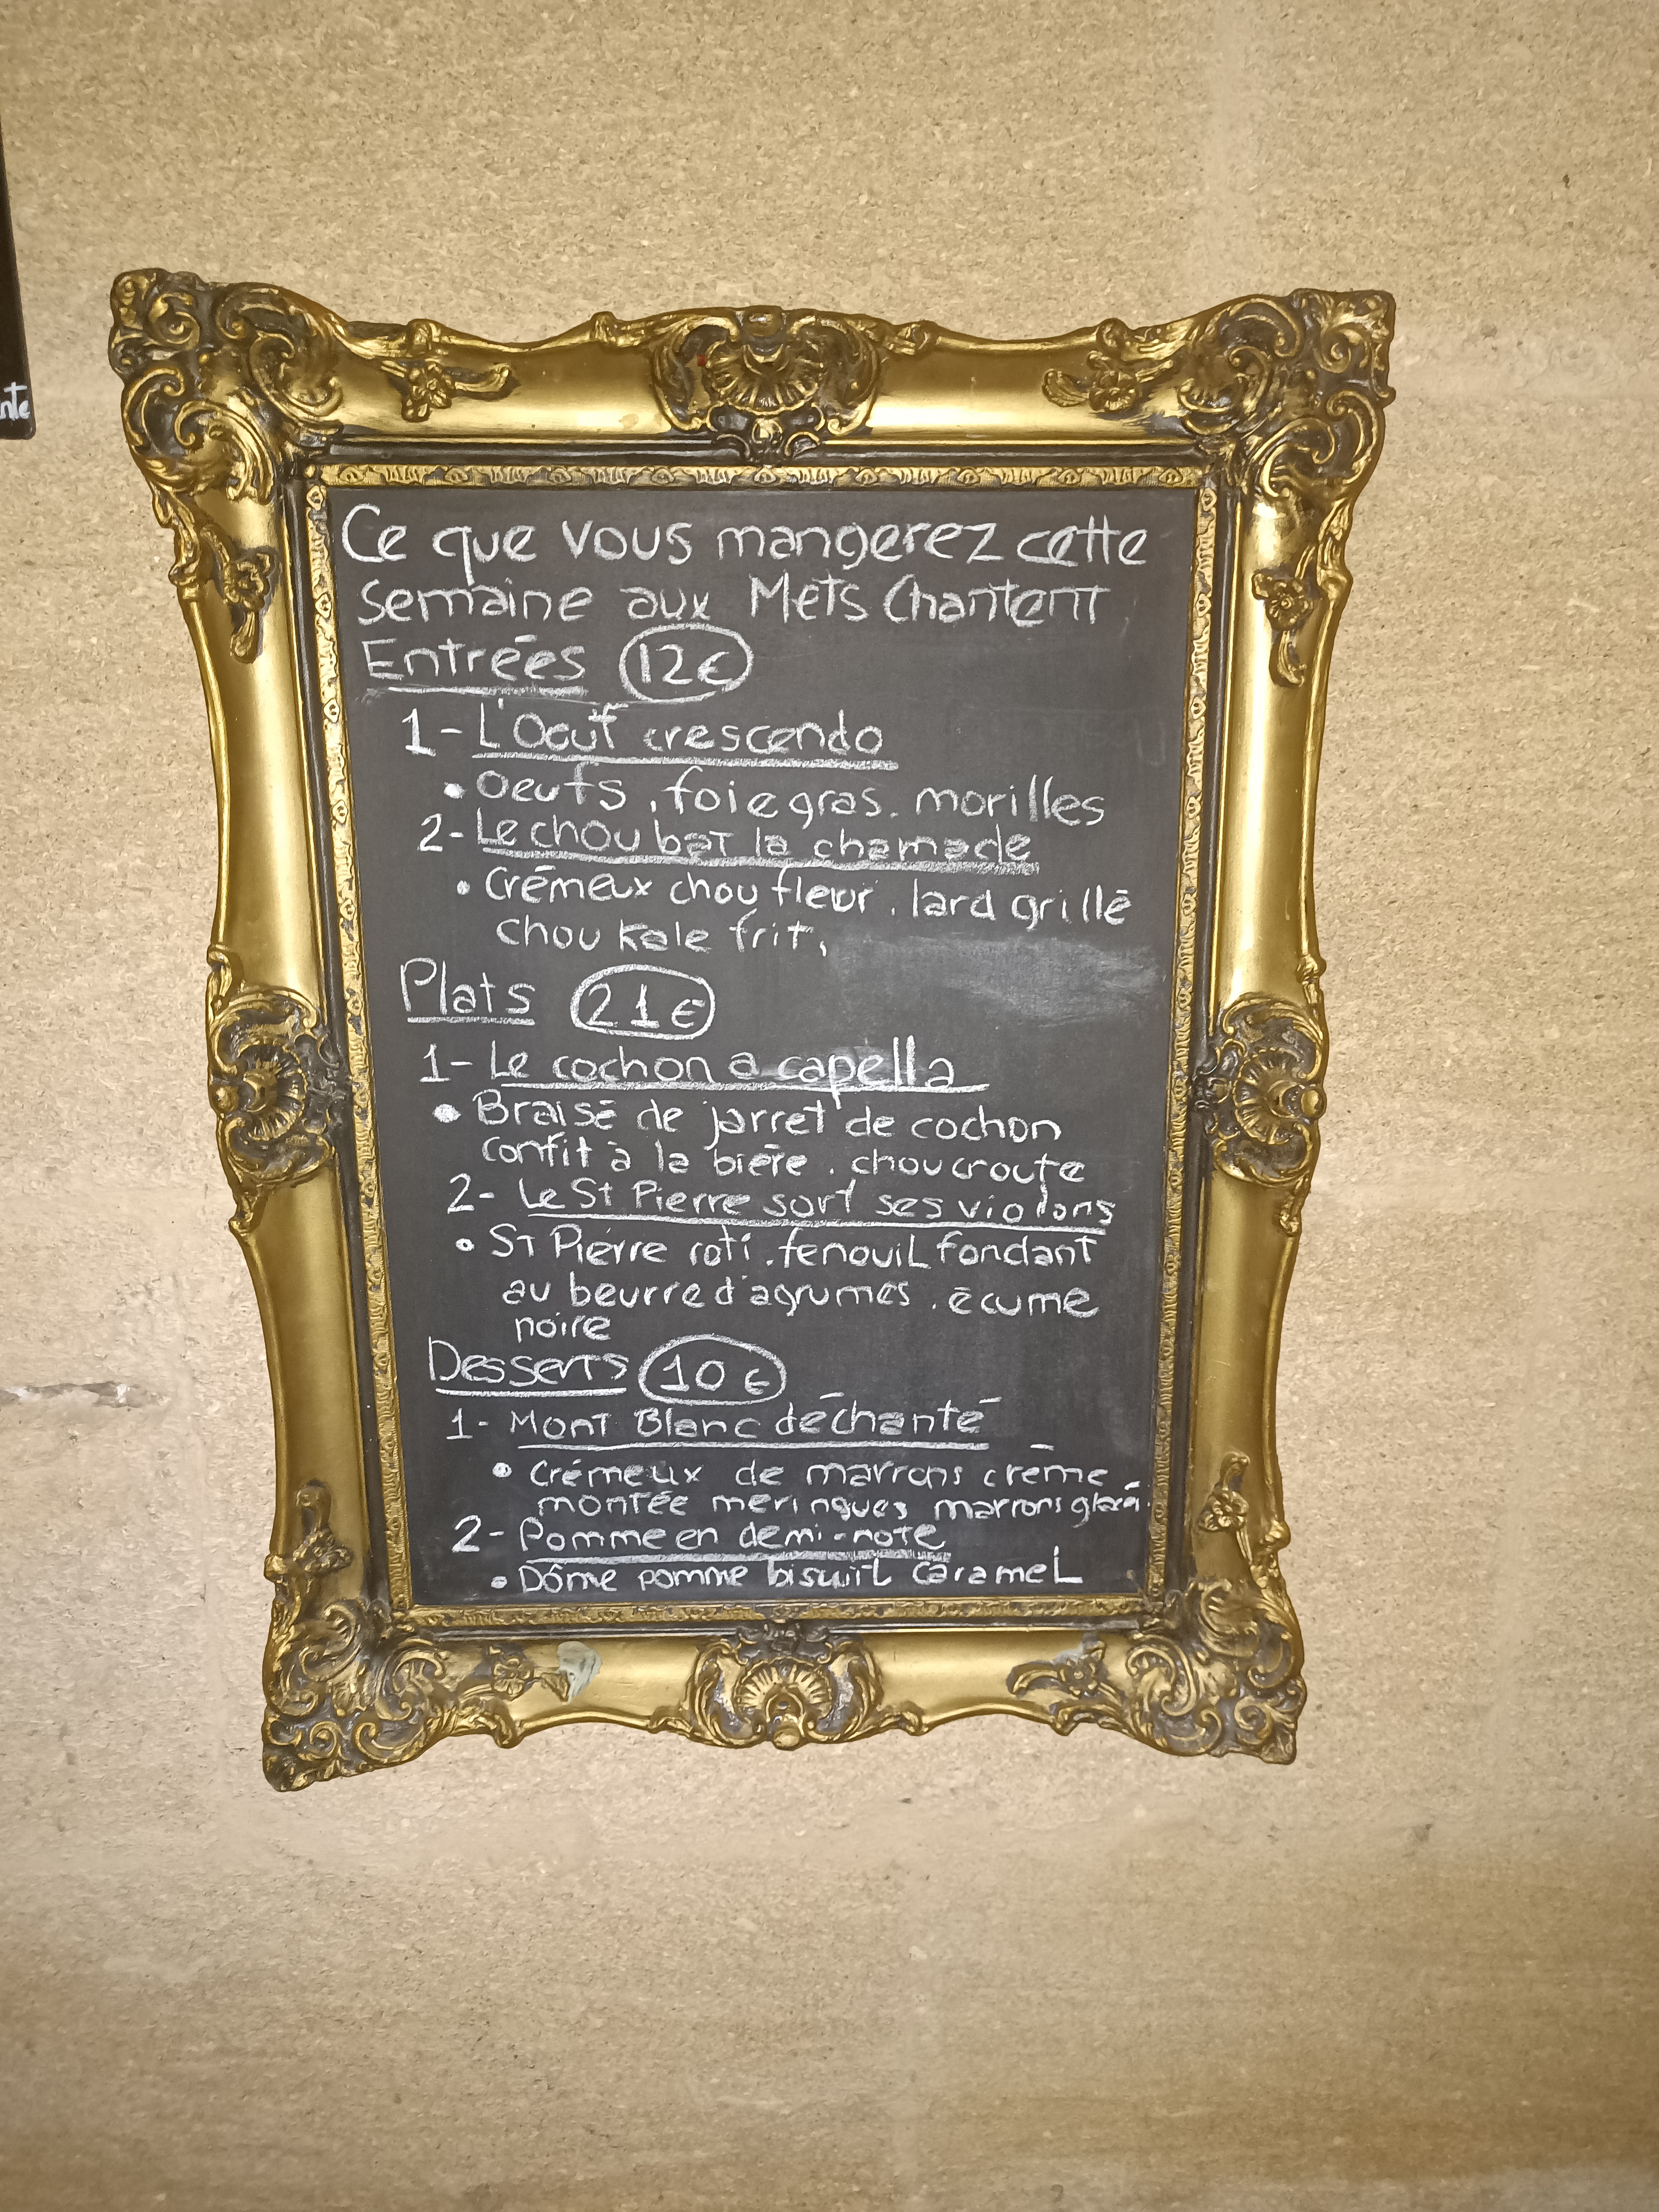 nte
Ce que vous mangerez cette
semaine aux Mets Chantent
Entrées 12€
1- L'Oeuf crescendo
• Oeufs, foie gras. morilles
2- Le chou bat la chamade
• Crémeux chou fleur. lard grillé
chou kale frit,
Plats 21€
1- Le cochon a capella
• Braisé de jarret de cochon
confit à la bière. choucroute
2- Le St Pierre sort ses violons
• St Pierre roti. fenouil fondant
au beurre d'agrumes. écume
noire
Desserts 10€
1- Mont Blanc déchanté
• Crémeux de marrons crème
montée meringues marrons glacés.
2- Pomme en demi-note
• Dôme pomme biscuit caramel